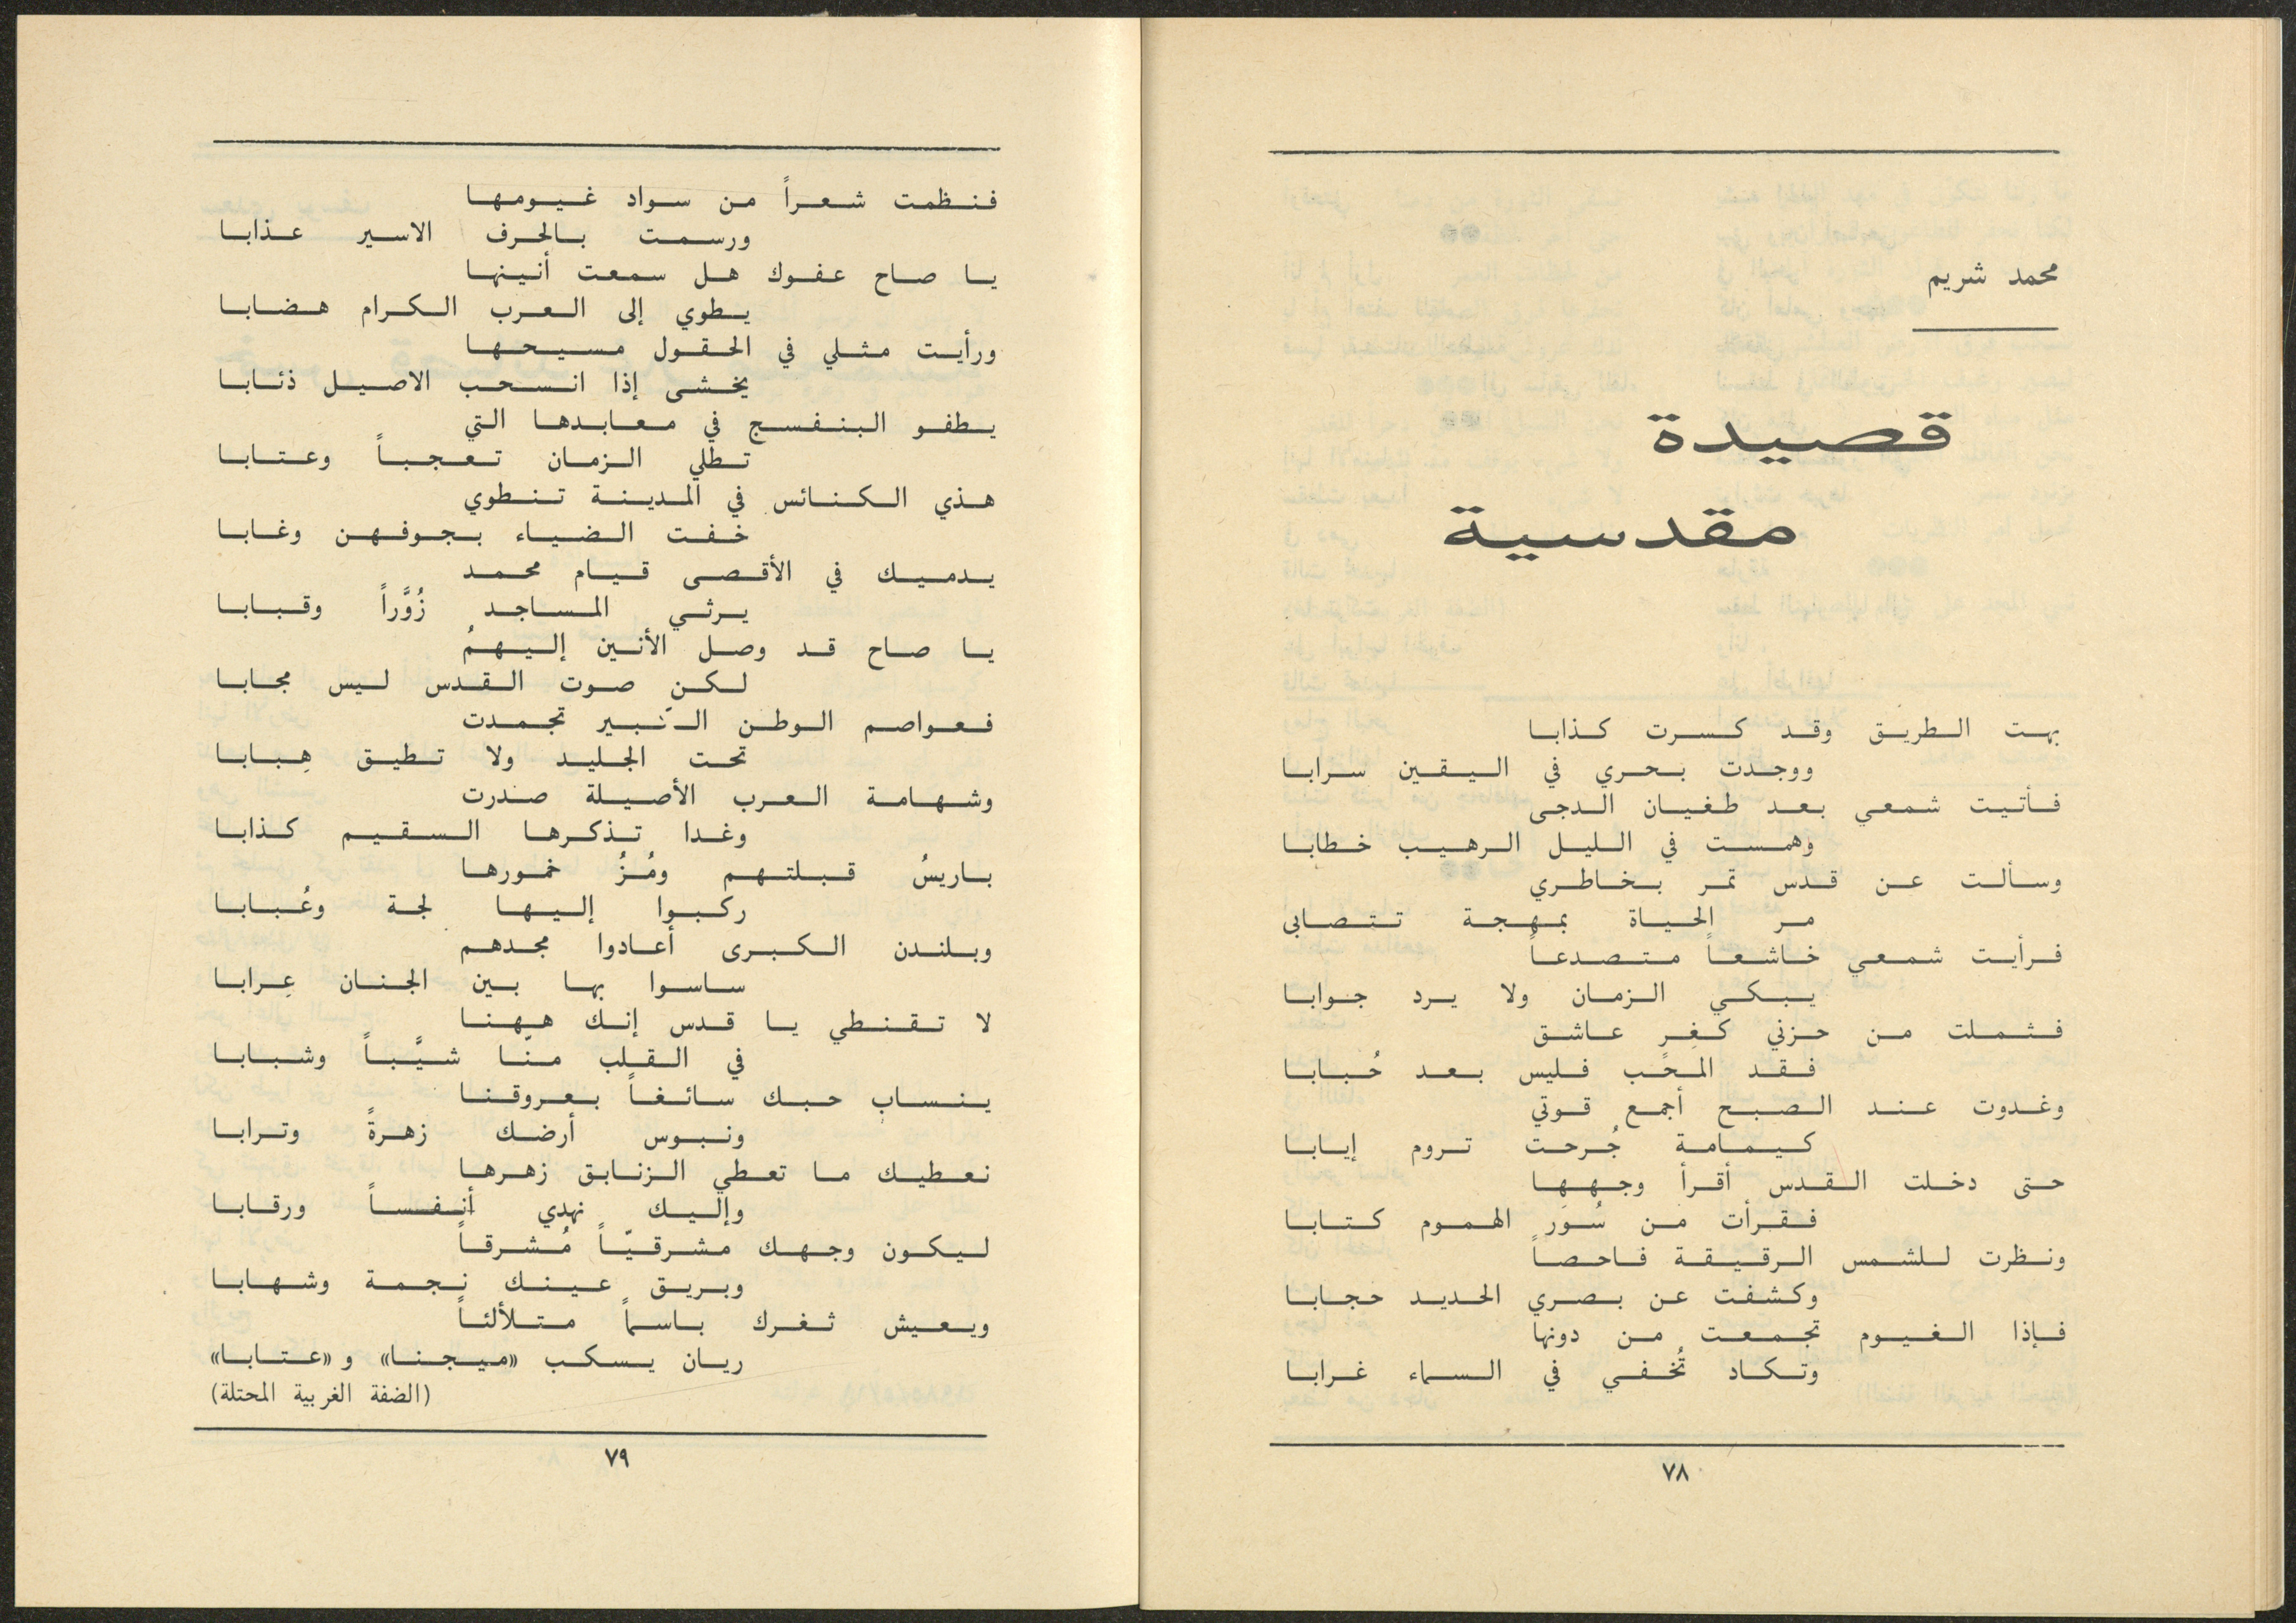 محمد شريم
قصيدة
مقدسية
بهت الطريق وقد كسرت كذابا
ووجدت بحري في اليقين سرابا
فأتيت شمعي بعد طغيان الدجى
وهمست في الليل الرهيب خطابا
وسألت عن قدس تمر بخاطري
مر الحياة بمهجة تتصابى
فرأيت شمعي خاشعاً متصدعاً
يبكي الزمان ولا يرد جوابا
فثملت من حزني كغِرٍ عاشق
فقد المحب فليس بعد حُبابا
وغدوت عند الصبح أجمع قوتي
كيمامة جُرحت تروم إيابا
حتى دخلت القدس أقرأ وجهها
فقرأت من سُوَر الهموم كتابا
ونظرت للشمس الرقيقة فاحصاً
وكشفت عن بصري الحديد حجابا
فإذا الغيوم تجمعت من دونها
وتكاد تُخفي في السماء غرابا
٧٨
فنظمت شعراً من سواد غيومها
ورسمت بالحرف الاسير عذابا
يا صاح عفوك هل سمعت أنينها
يطوي إلى العرب الكرام هضابا
ورأيت مثلي في الحقول مسيحها
يخشى إذا انسحب الاصيل ذئابا
يطفو البنفسج في معابدها التي
تطلي الزمان تعجباً وعتابا
هذي الكنائس في المدينة تنطوي
خفت الضياء بجوفهن وغابا
يدميك في الأقصى قيام محمد
يرثي المساجد زُوَّراً وقبابا
يا صاح قد وصل الأنين إليهمُ
لكن صوت القدس ليس مجابا
فعواصم الوطن تجمدت
تحت الجليد ولا تطيق هِبابا
وشهامة العرب الأصيلة صدرت
وغدا تذكرها السقيم كذابا
باريسُ قبلتهم ومُزُّ خمورها
ركبوا إليها لجة وعُبابا
وبلندن الكبرى أعادوا مجدهم
ساسوا بها بين الجنان عِرابا
لا تقنطي يا قدس إنك ههنا
في القلب منّا شيَّباً وشبابا
ينساب حبك سائغاً بعروقنا
ونبوس أرضك زهرةً وترابا
نعطيك ما تعطي الزنابق زهرها
وإليك نهدي أنفساً ورقابا
ليكون وجهك مشرقيّاً مُشرقاً
وبريق عينك نجمة وشهابا
ويعيش ثغرك باسماً متلألئاً
ريان يسكب «ميجنا» و «عتابا»
(الضفة الغربية المحتلة)
٧٩